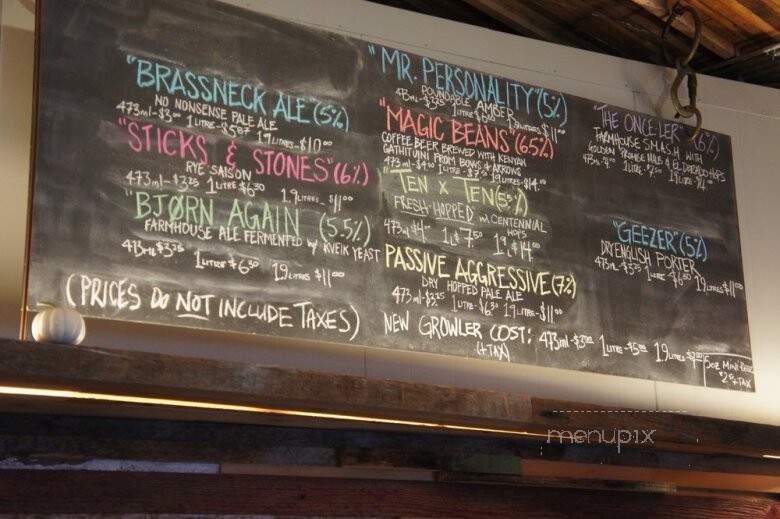 "BRASSNECK ALE (5%)
NO NONSENSE PALE ALE
473ml-$3.00 1LITRE-5 1.9LITRES-$10.00
"STICKS & STONES" (6%)
RYE SAISON
473ml-$3.25 1LITRE $6.30 1.9LITRES-$11.00
"BJØRN AGAIN (5.5%)
FARMHOUSE ALE FERMENTED w/ KVEIK YEAST
473ml $3.25 1LITRE $6.30 1.9LITRES $11.00
(PRICES DO NOT INCLUDE TAXES)
"MR. PERSONALITY" (5%)
POUNDABLE AMBER
473ml-$3.25 1LITRE $6 1.9LITRES-$11.00
"MAGIC BEANS" (6.5%)
COFFEE BEER BREWED WITH KENYAN
GATHITUINI FROM BOWS & ARROWS
473ml-$4.00 1LITRE-$7.50 1.9LITRES-$14.00
"TEN x TEN (5.5%)
FRESH-HOPPED w/ CENTENNIAL
HOPS
473ml $4 1L $7.50 1.9L $14.00
PASSIVE AGGRESSIVE (7%)
DRY HOPPED PALE ALE
473ml-$3.25 1LITRE-$6.30 1.9LITRES-$11.00
NEW GROWLER COST: 473ml-$3.00 1LITRE-$5.00 1.9LITRES
(+TAX)
"THE ONCE-LER" (6%)
FARMHOUSE S.M.A.S.H. WITH
GOLDEN PROMISE MALT & EL DORADO HOPS
473ml 1LITRE 1.9LITRES
"GEEZER" (5%)
DRY ENGLISH PORTER
473ml 1LITRE $6.30 1.9LITRES $11.00
5oz MINI
+TAX
menupix